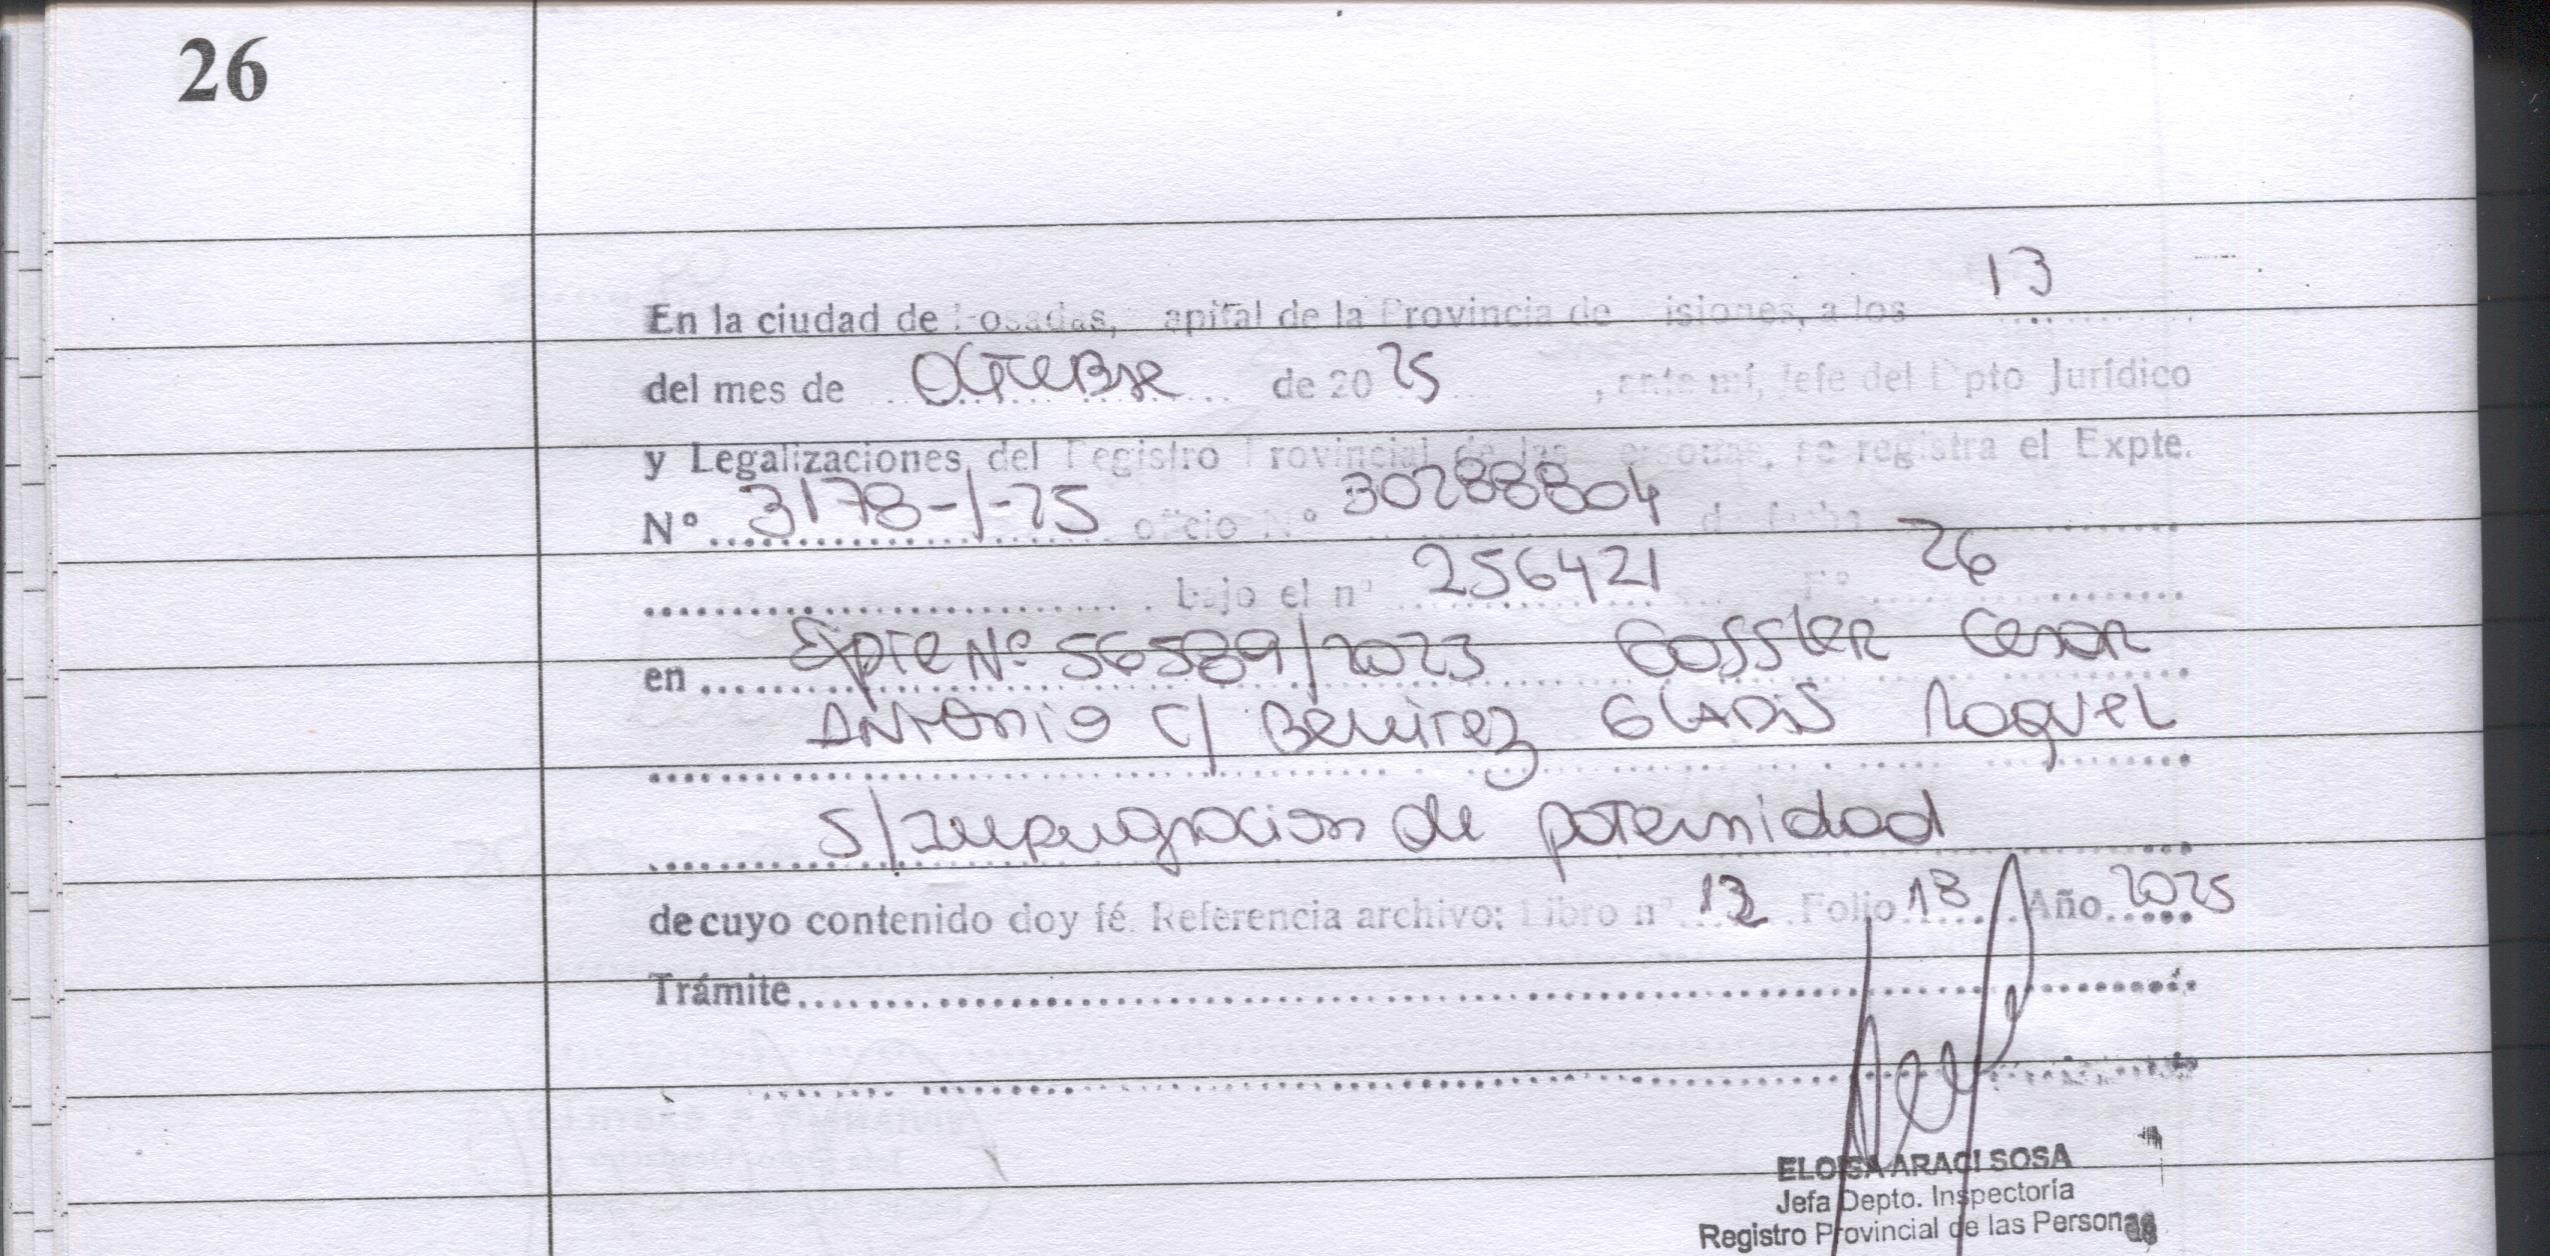 26
En la ciudad de Posadas, apital de la Provincia de isiones, a los 13
del mes de OCTUBRE de 2025, ante mí, Jefe del Dpto Jurídico
y Legalizaciones del Registro Provincial de las ersonas, se registra el Expte.
Nº 3178-I-25 oficio Nº 30288804 de fecha
bajo el nº 256421 Fº 26
en Expte Nº 56589/2023 Gossler Cesar
ANTONIO C/ Benitez GLADIS Raquel
S/Impugnacion de paternidad
de cuyo contenido doy fé. Referencia archivo: Libro nº 12 Folio 13 Año 2025
Trámite
ELOISA ARACI SOSA
Jefa Depto. Inspectoría
Registro Provincial de las Personas